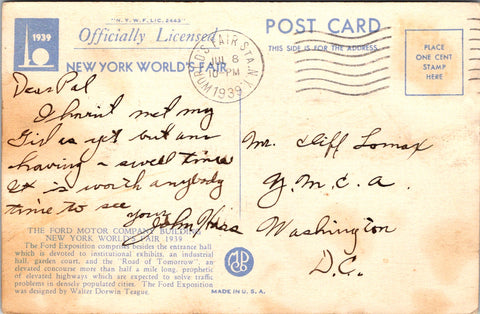 "N.Y.W.F. LIC. 2443"
1939
Officially Licensed
NEW YORK WORLD'S FAIR
POST CARD
THIS SIDE IS FOR THE ADDRESS
PLACE
ONE CENT
STAMP
HERE
WORLDS FAIR STA. N.Y.
JUL 8
10 PM
1939
Dear Pal
I havn't met my
as yet but am
having a swell time
It is worth anybody
time to see
yours
John
Mr. Cliff Lomax
Y.M.C.A.
Washington
D.C.
THE FORD MOTOR COMPANY BUILDING
NEW YORK WORLD'S FAIR 1939
The Ford Exposition comprises besides the entrance hall
which is devoted to institutional exhibits, an industrial
hall, garden court, and the "Road of Tomorrow", an
elevated concourse more than half a mile long, prophetic
of elevated highways which are expected to solve traffic
problems in densely populated cities. The Ford Exposition
was designed by Walter Dorwin Teague.
MADE IN U.S.A.